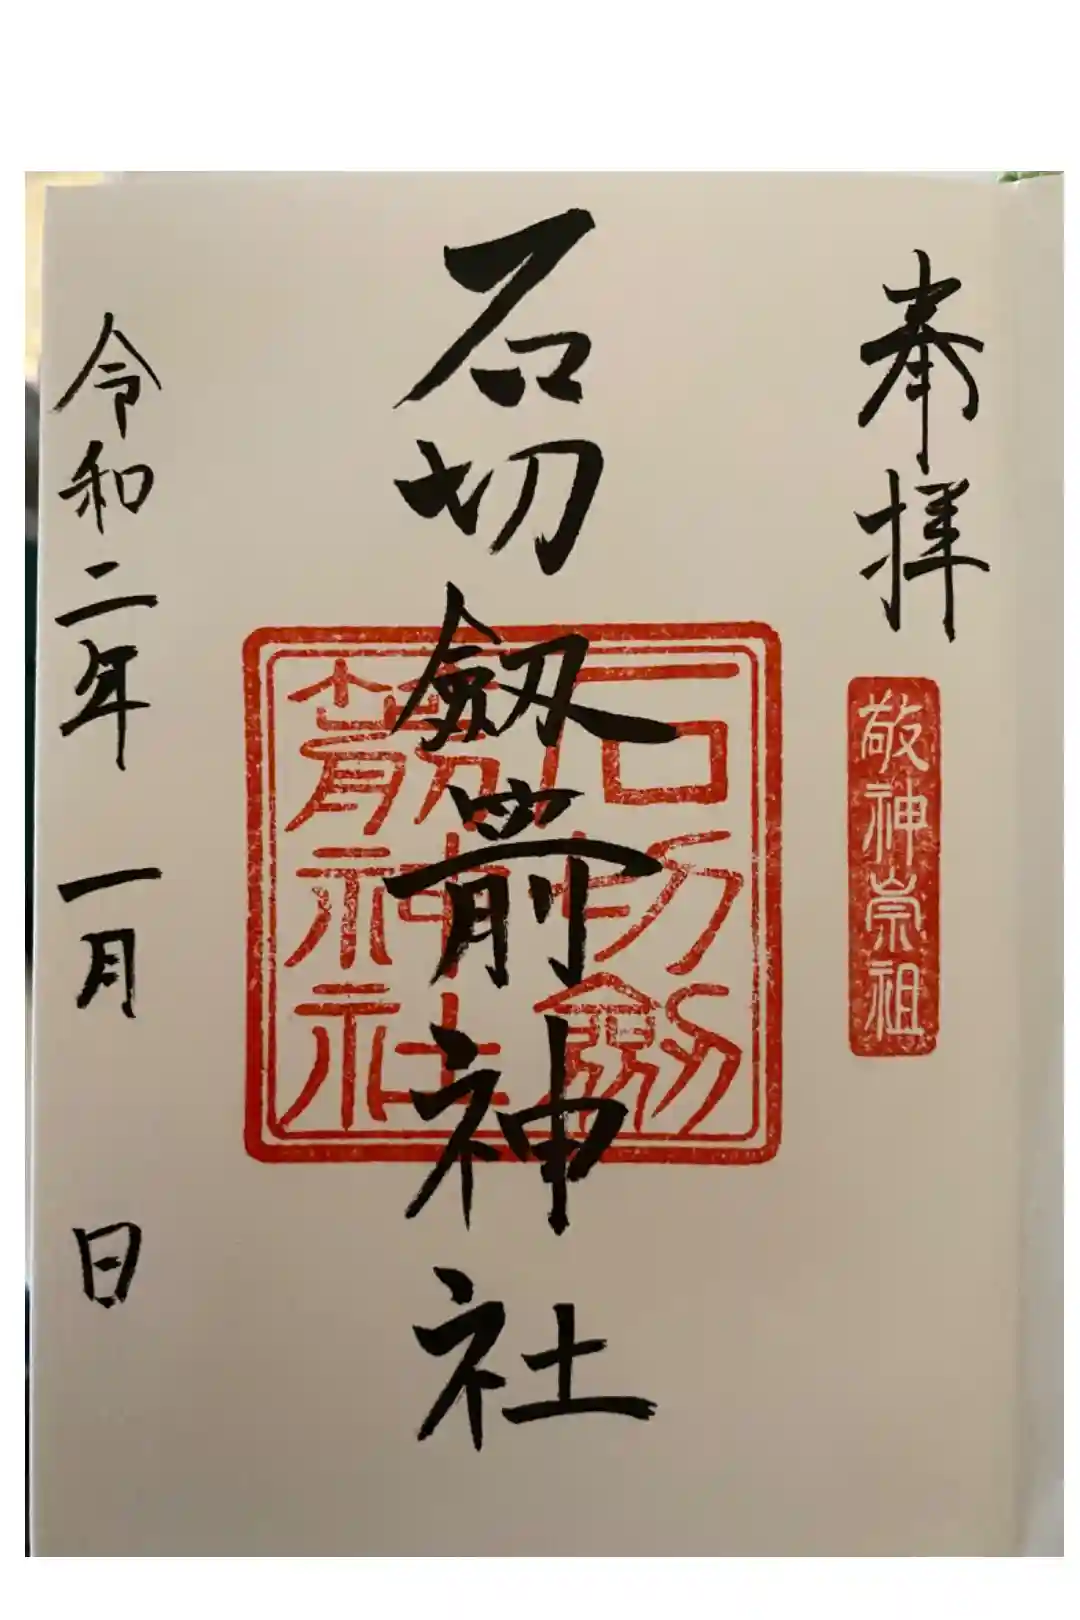 奉拝
敬神崇祖
石切劔箭神社
石切劔
箭神社
令和二年一月 日